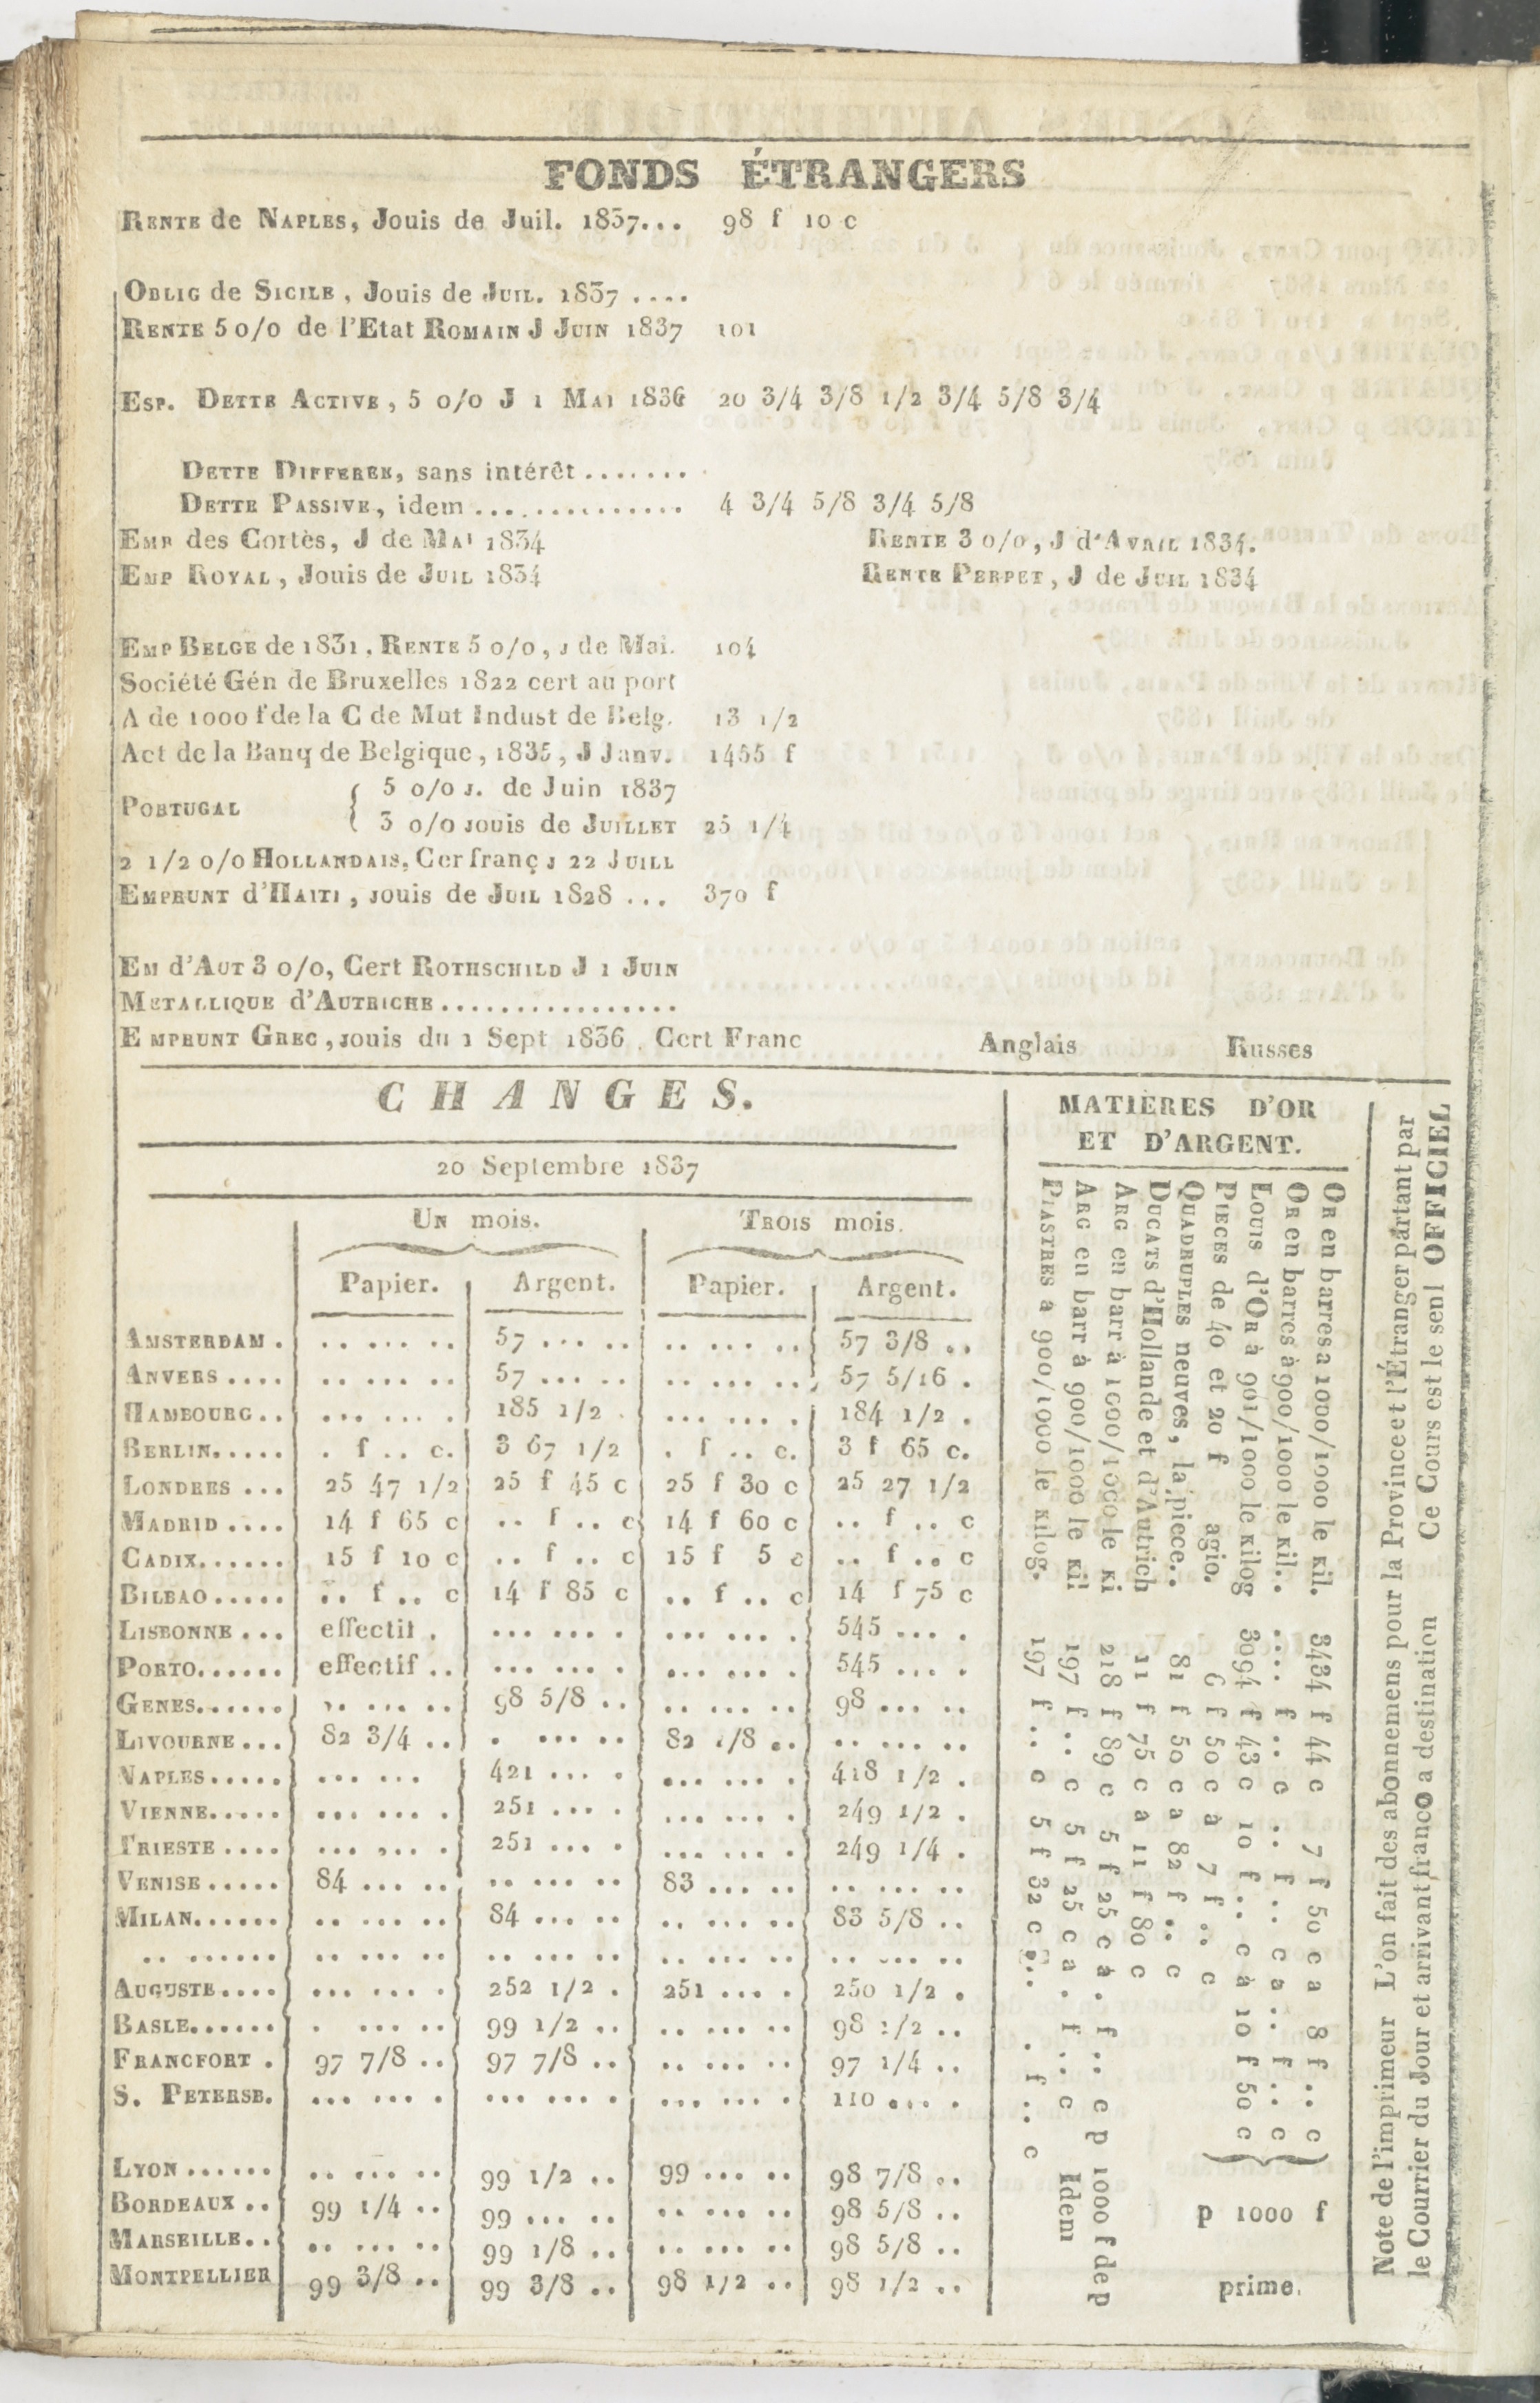 FONDS ÉTRANGERS
RENTE de NAPLES, Jouis de Juil. 1837... 98 f 10 c
OBLIG de SICILE, Jouis de JUIL. 1837 ....
RENTE 5 o/o de l'Etat ROMAIN J JUIN 1837 101
ESP. DETTE ACTIVE, 5 o/o J 1 MAI 1836 20 3/4 3/8 1/2 3/4 5/8 3/4
DETTE DIFFEREE, sans intérêt .......
DETTE PASSIVE, idem .............. 4 3/4 5/8 3/4 5/8
EMP des Cortès, J de MAI 1834 RENTE 3 o/o, J d'AVRIL 1834.
EMP ROYAL, Jouis de JUIL 1834 RENTE PERPET, J de JUIL 1834
EMP BELGE de 1831. RENTE 5 o/o, J de Mai. 104
Société Gén de Bruxelles 1822 cert au port
A de 1000 f de la C de Mut Indust de Belg. 13 1/2
Act de la Banq de Belgique, 1835, J Janv. 1455 f
PORTUGAL { 5 o/o J. de Juin 1837
{ 3 o/o JOUIS de JUILLET 25 1/4
2 1/2 o/o HOLLANDAIS, Cer franç J 22 JUILL
EMPRUNT d'HAITI, JOUIS de JUIL 1828 ... 370 f
EM d'AUT 3 o/o, Cert ROTHSCHILD J 1 JUIN
METALLIQUE d'AUTRICHE................
EMPRUNT GREC, JOUIS du 1 Sept 1836. Cert Franc Anglais Russes
CHANGES.
20 Septembre 1837
UN mois. TROIS mois.
Papier. Argent. Papier. Argent.
AMSTERDAM . .. ... .. 57 ... .. .. ... .. 57 3/8 ..
ANVERS .... .. ... .. 57 ... .. .. ... .. 57 5/16 .
HAMBOURG.. ... ... . 185 1/2 . ... ... . 184 1/2 .
BERLIN..... . f .. c. 3 67 1/2 . f .. c. 3 f 65 c.
LONDRES ... 25 47 1/2 25 f 45 c 25 f 30 c 25 27 1/2
MADRID .... 14 f 65 c .. f .. c 14 f 60 c .. f .. c
CADIX...... 15 f 10 c .. f .. c 15 f 5 c .. f .. c
BILBAO..... .. f .. c 14 f 85 c .. f .. c 14 f 75 c
LISBONNE ... effectif . ... ... . ... ... . 545 ... .
PORTO...... effectif .. ... ... . ... ... . 545 ... .
GENES...... .. ... .. 98 5/8 .. .. ... .. 98 ... ..
LIVOURNE... 82 3/4 .. . ... .. 82 1/8 .. .. ... ..
NAPLES..... ... ... 421 ... . ... ... . 418 1/2 .
VIENNE..... ... ... . 251 ... . ... ... . 249 1/2 .
TRIESTE .... ... ... . 251 ... . ... ... . 249 1/4 .
VENISE ..... 84 ... .. .. ... .. 83 ... .. .. ... ..
MILAN...... .. ... .. 84 ... .. .. ... .. 83 5/8 ..
.. ...... .. ... .. .. ... .. .. ... .. .. ... ..
AUGUSTE.... ... ... . 252 1/2 . 251 ... . 250 1/2 .
BASLE...... . ... .. 99 1/2 .. .. ... .. 98 1/2 ..
FRANCFORT . 97 7/8 .. 97 7/8 .. .. ... .. 97 1/4 ..
S. PETERSB. ... ... . ... ... . ... ... . 110 ... .
LYON ...... .. ... .. 99 1/2 .. 99 ... .. 98 7/8 ..
BORDEAUX .. 99 1/4 .. 99 ... .. .. ... .. 98 5/8 ..
MARSEILLE.. .. ... .. 99 1/8 .. .. ... .. 98 5/8 ..
MONTPELLIER 99 3/8 .. 99 3/8 .. 98 1/2 .. 98 1/2 ..
MATIÈRES D'OR
ET D'ARGENT.
OR en barres a 1000/1000 le KIL. 3434 f 44 c 7 f 50 c a 8 f .. c
OR en barres à 900/1000 le KIL.. .... f .. c .. f .. c a .. f .. c
LOUIS d'OR à 901/1000 le KILOG 3094 f 43 c 10 f .. c à 10 f 50 c
} p 1000 f
prime.
PIECES de 40 et 20 f agio. 6 f 50 c à 7 f .. c
QUADRUPLES neuves, la piece.. 81 f 50 c a 82 f .. c
DUCATS d'Hollande et d'Autrich 11 f 75 c a 11 f 80 c
ARG en barr à 1000/1000 le KI 218 f 89 c 5 f 25 c à . f .. c p 1000 f de p
ARG en barr à 900/1000 le KIL 197 f .. c 5 f 25 c a . f .. c Idem
PIASTRES a 900/1000 le KILOG. 197 f .. c 5 f 32 c .. . f .. c
Note de l'imprimeur L'on fait des abonnemens pour la Province et l'Étranger pàrtant par
le Courrier du Jour et arrivant franco a destination Ce Cours est le seul OFFICIEL